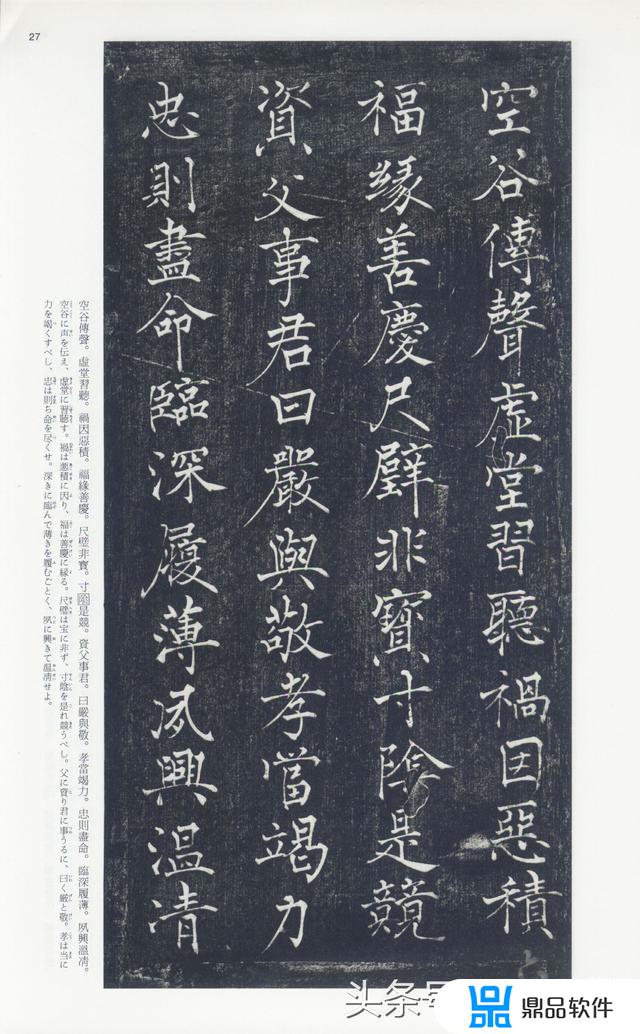 27
空谷傳聲虛堂習聽禍因惡積
福緣善慶尺璧非寶寸陰是競
資父事君曰嚴與敬孝當竭力
忠則盡命臨深履薄夙興溫凊
空谷傳聲。虛堂習聽。禍因惡積。福緣善慶。尺璧非寶。寸陰是競。資父事君。曰嚴與敬。孝當竭力。忠則盡命。臨深履薄。夙興溫凊。
空谷に声を伝え、虚堂に習聴す。禍は悪積に因り、福は善慶に縁る。尺璧は宝に非ず、寸陰を是れ競うべし。父に資り君に事うるに、曰く厳と敬。孝は当に
力を竭くすべし、忠は則ち命を尽くせ。深きに臨んで薄きを履むごとく、夙に興きて温凊せよ。
头条号
鼎品软件